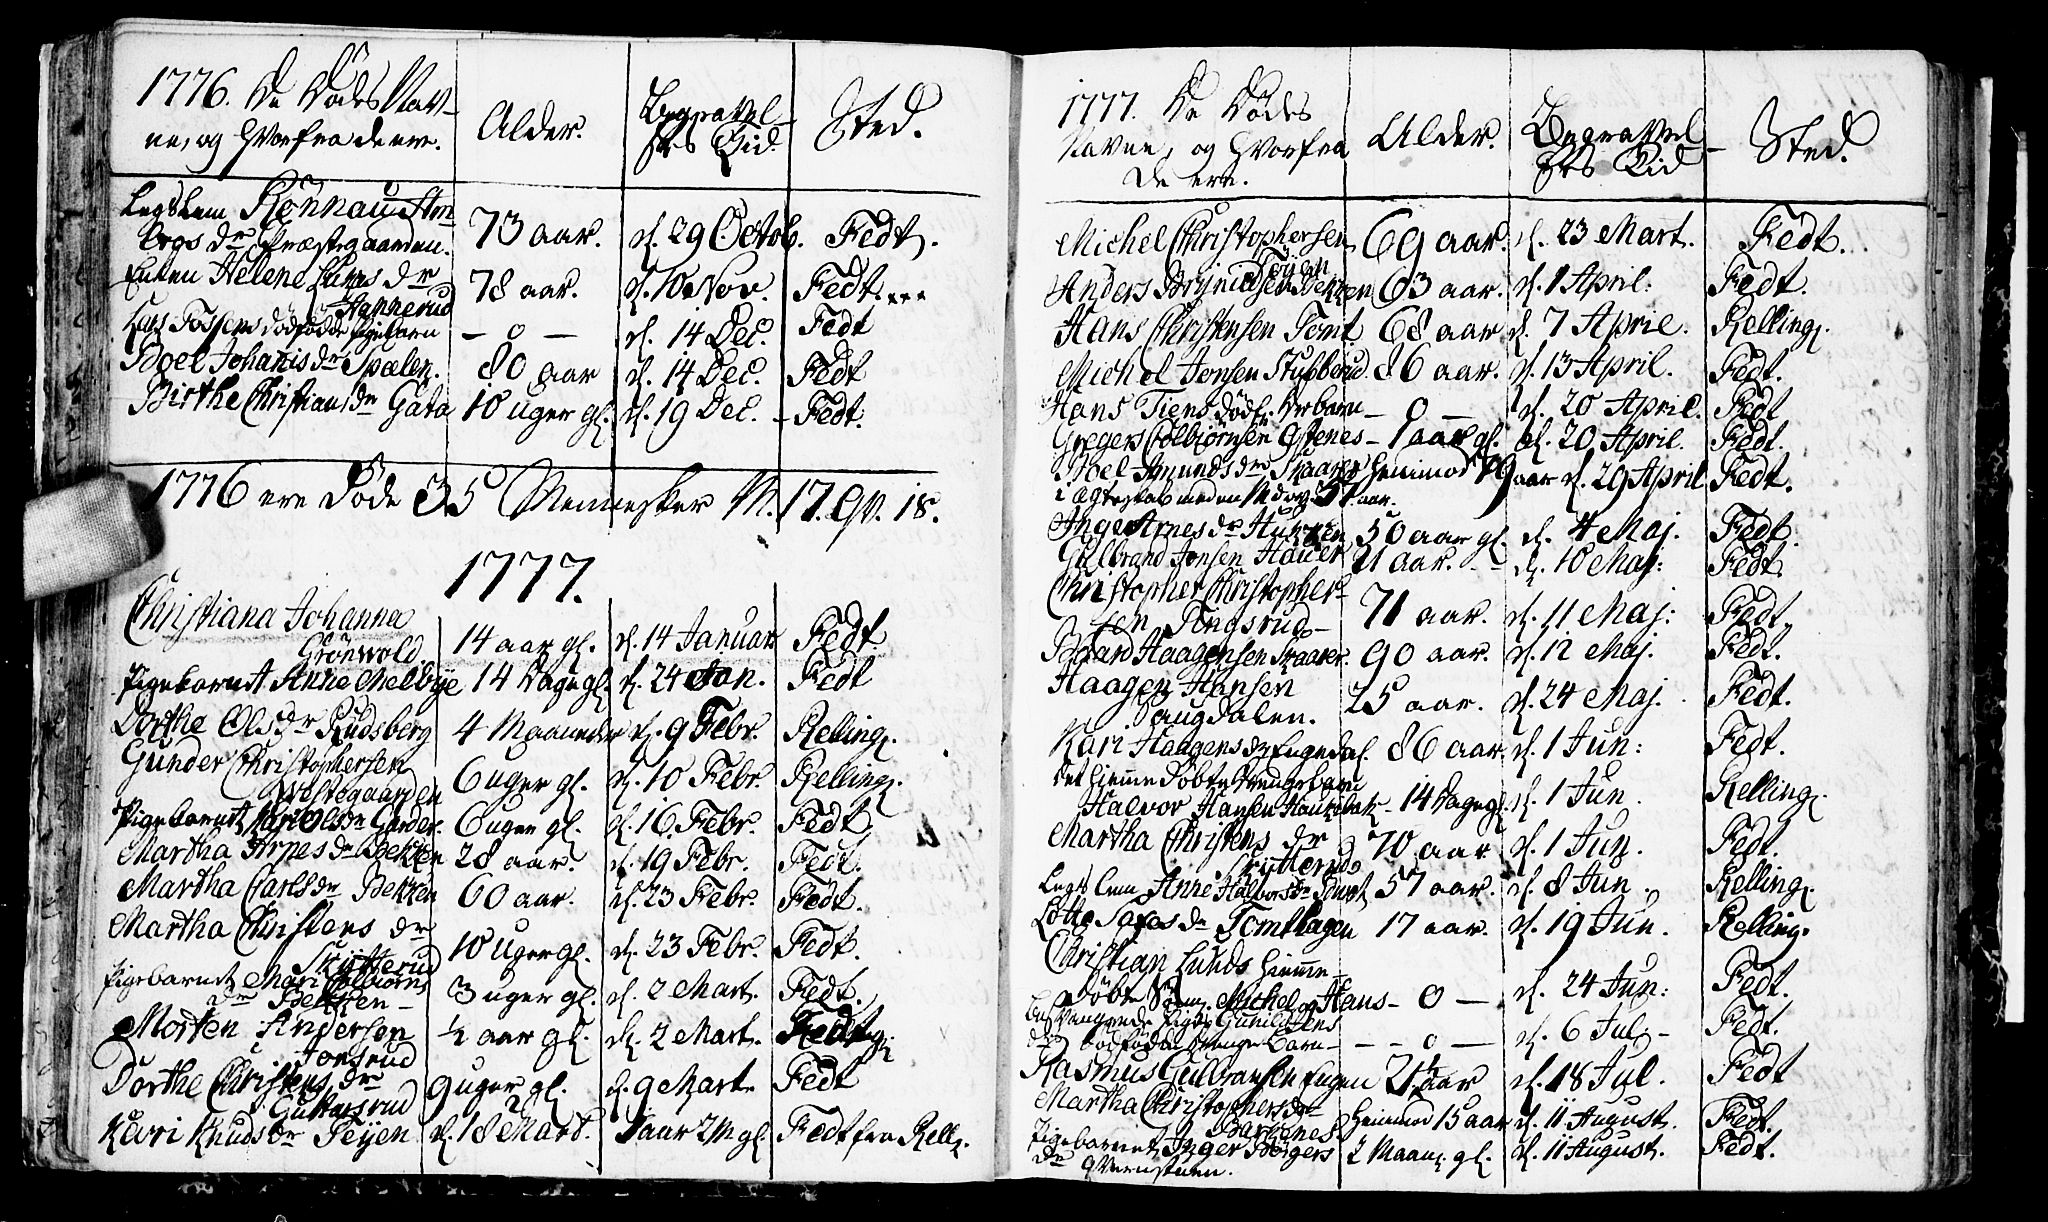 1776. De Dödes Nav-
ne, og hvorfra de ere.
Alder.
Begravel-
ses Tid.
Sted.
Legslem Rönnau Am
borgs dr Præstegaarden. 73 aar. d. 29 Octob. Fedt.
Enken Helene Lars dr
Hannerud 78 aar. d. 10 Nov. Fedt.
Lars Fossens dödfödde Pigebarn - 0 - d. 14 Dec. Fedt
Boel Johanis dr Spælen. 80 aar d. 14 Dec. Fedt
Birthe Christians dr Gata 10 uger gl. d. 19 Dec. - Fedt.
1776 ere Döde 35 Mennesker M. 17. Qv. 18.
1777.
Christiana Johanna
Grönwold 14 aar gl. d. 14 Januar Fedt.
Pigebarnet Anne Melbye 14 Dage gl. d. 24 Jan. Fedt
Dorthe Ols dr Rudsberg 4 Maaneder d. 9 Febr. Relling.
Gunder Christophersen
Westegaarden 6 uger gl. d. 10 Febr. Relling.
Pigebarnet Mari Ols dr Garder. 6 uger gl. d. 16. Febr. Fedt.
Martha Arnes dr Bekken 28 aar. d. 19 Febr. Fedt.
Martha Carls dr Bekken 60 aar. d. 23 Febr. Fedt.
Martha Christens dr
Skytterud 10 Uger gl. d. 23 Febr. Fedt.
Pigebarnet Mari Colbiörns
dr Bekken - 3 uger gl. d. 2 Mart. Fedt.
Morten Andersen
Jonsrud ½ aar gl. d. 2 Mart.
Dorthe Christens dr
Guttersrud 9 uger gl. d. 9 Mart. Fedt
Kari Knuds dr Teyen d. 18 Mart. 1 aar 2 M gl. Fedt fra Rell.
1777. De Dödes
Navne, og hvorfra
de ere.
Alder.
Begravel-
ses Tid
Sted.
Michel Christophersen
Töyen 69 aar. d. 23 Mart. Fedt.
Anders Brynildsen Bekken 63 aar. d. 1 April. Fedt.
Hans Christensen Tomt 68 aar d. 7 April. Relling.
Michel Jonsen Stubberud. 86 aar. d. 13 April. Fedt.
Hans Tiens dödf. barn - 0 - d. 20 April. Fedt
Gregers Colbiörnsen Ostenes - 1 aar gl. d. 20 April. Fedt.
Boel Amunds dr Skaarer henimod 79 aar d. 29 April Fedt.
i Ægteskab med en Mand i 51. aar.
Inger Arnes dr Hukken 50 aar gl. d. 4 Maj. Fedt.
Gulbrand Jonsen Hauer 21 aar. - - d. 10 Maj: Fedt.
Christopher Christopher-
sen Tingsrud - 71 aar. d. 11 Maj: Fedt.
Baard Haagensen Skaarer. 90 aar. d. 12 Maj. Fedt.
Haagen Hansen
Haugdalen. 25 aar. d. 24 Maj. Fedt.
Kari Haagens dr Engedal. 86 aar. d. 1 Jun: Fedt.
Det hiemme döbte Drengebarn
Halvor Hansen Haukebæk - 14 Dage gl. d. 1 Jun. Relling.
Martha Christens dr
Skytterud 70 aar d. 1 Jun. Fedt.
Legslem Anne Halvors dr Tomt 57 aar. d. 8 Jun. Relling.
Lotte Tofas dr Tomthagen 17 aar. d. 19 Jun. Relling.
Christian Lunds hiemme-
döbte Sön Michel og Hans - 0 - d. 24 Jun: Fedt.
Besvangrede Pige Gunild Jens
dr dödfödde Drenge Barn - - - 0 - d. 6 Jul. - Fedt.
Rasmus Gulbransen Engen 21½ aar d. 18 Jul. Fedt
Martha Christophers dr
Barknes. henimod 15 aar d. 11 August. Fedt.
Pigebarnet Inger Börgers
dr Qvernstuen. 2 Maan. gl. d. 11 August. Fedt.